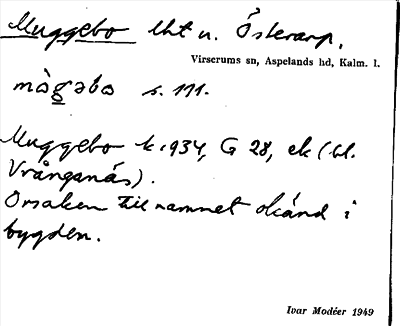 Muggebo lht u. Österarp.
Virserums sn, Aspelands hd, Kalm. l.
mògəbo s. 111.
Muggebo k 1934, G 28, ek (bl.
Vrånganäs).
Orsaken till namnet okänd i
bygden.
Ivar Modéer 1949